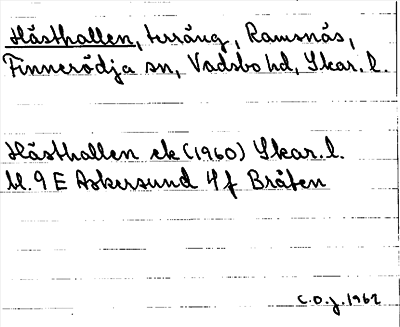 Hästhallen, terräng, Ramsnäs,
Finnerödja sn, Vadsbo hd, Skar. l.
Hästhallen ek (1960) Skar. l.
bl. 9 E Askersund 4f Bråten
C.O.J. 1962